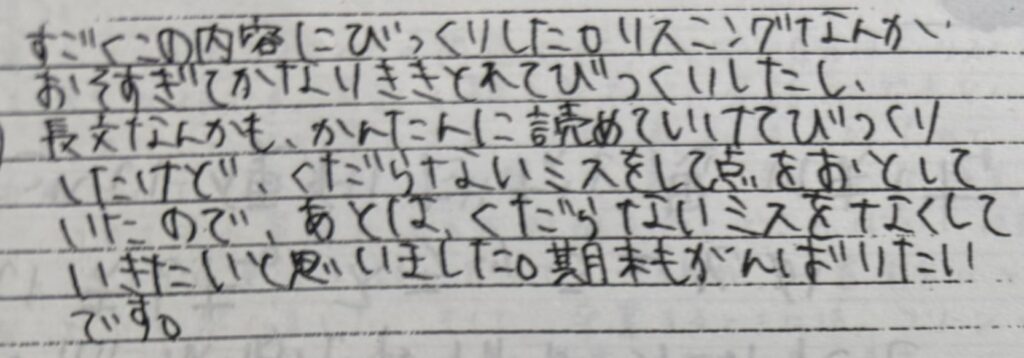 すごくこの内容にびっくりした。リスニングなんか、
おそすぎてかなりききとれてびっくりしたし、
長文なんかも、かんたんに読めていけてびっくり
したけど、くだらないミスをして点をおとして
いたので、あとは、くだらないミスをなくして
いきたいと思いました。期末もがんばりたい
です。